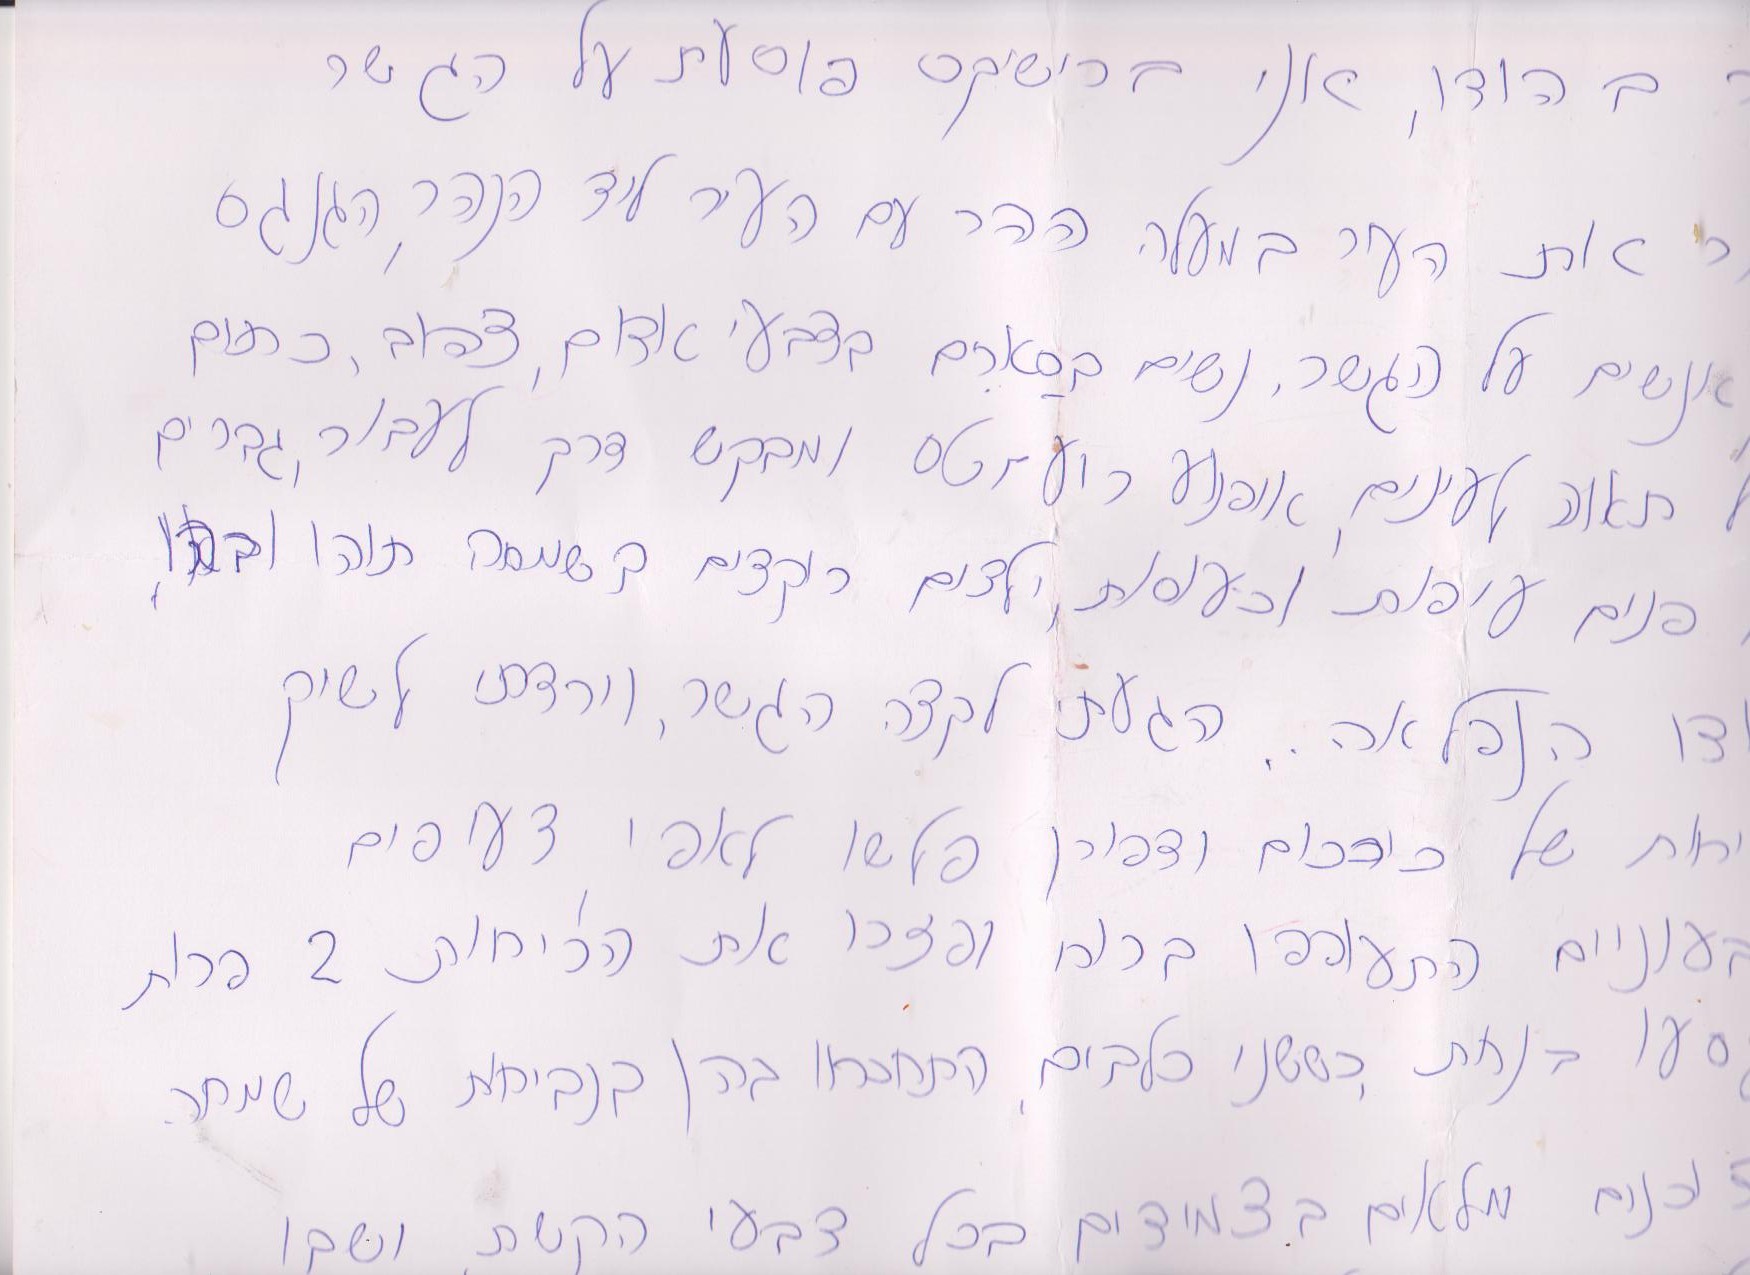 ב הודו, אני ברישיקש פוסעת על הגשר
את העיר במעלה ההר עם העיר ליד הנהר, הגנגס
אנשים על הגשר, נשים בסארים בצבעי אדום, צהוב, כתום
תאוה לעינים, אופנוע רועש טס ומבקש דרך לעבור, גברים
פנים עיפות וכעוסות, ילדים רוקדים בשמחה תוהו ובוהו,
הנפלאה.. הגעתי לקצה הגשר, וירדתי לשוק
של כורכום וצפורן פלשו לאפי צעיפים
צבעוניים התעופפו ברוח ופזרו את הריחות 2 פרות
פסעו בנחת, כששני כלבים, התחככו בהן בנביחות של שמחה.
דוכנים מלאים בצמידים בכל צבעי הקשת ושבו